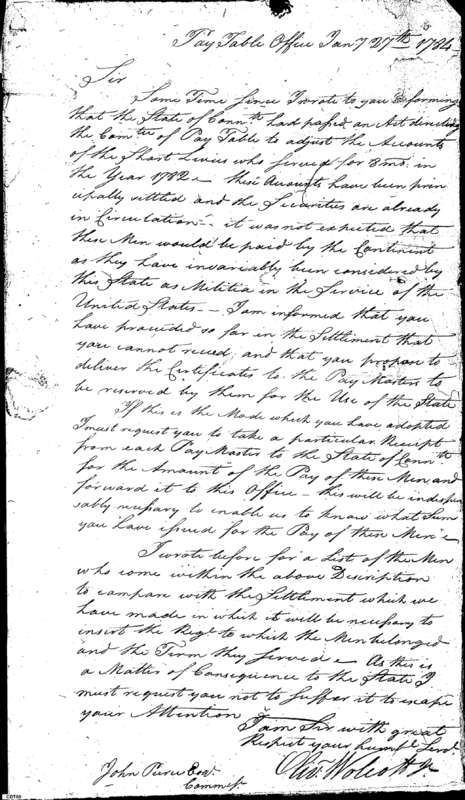 Pay Table Office Jany 27th 1784
Sir
Some Time Since I wrote to you informing
that the State of Connt had passed an Act directing
the Comtee of Pay Table to adjust the Accounts
of the Short Levies who served for 8 ms. in
the Year 1782 – these Accounts have been prin
cipally settled and the Securities are already
in Circulation – it was not expected that
these Men would be paid by the Continent
as they have invariably been considered by
this State as Militia in the Service of the
United States – I am informed that you
have proceeded so far in the Settlement that
you cannot reced, and that you propose to
deliver the Certificates to the Pay Masters to
be reserved by them for the Use of the State
If this is the Mode which you have adopted
I must request you to take a particular Receipt
from each Pay Master to the State of Connt
for the Amount of the Pay of these Men, and
forward it to this Office – this will be indispen
sably necessary to enable us to know what Sum
you have issued for the Pay of these Men –
I wrote before for a List of the Men
who come within the above Discription
to compare with the Settlement which we
have made in which it will be necessary to
insert the Regt to which the Men belonged
and the Term they served – As this is
a Matter of Consequence to the State I
must request you not to suffer it to escape
your Attention
I am Sir with great
Respect your humbl Servt
Olivr Wolcott Jr
John Pierce Esqr
Commr